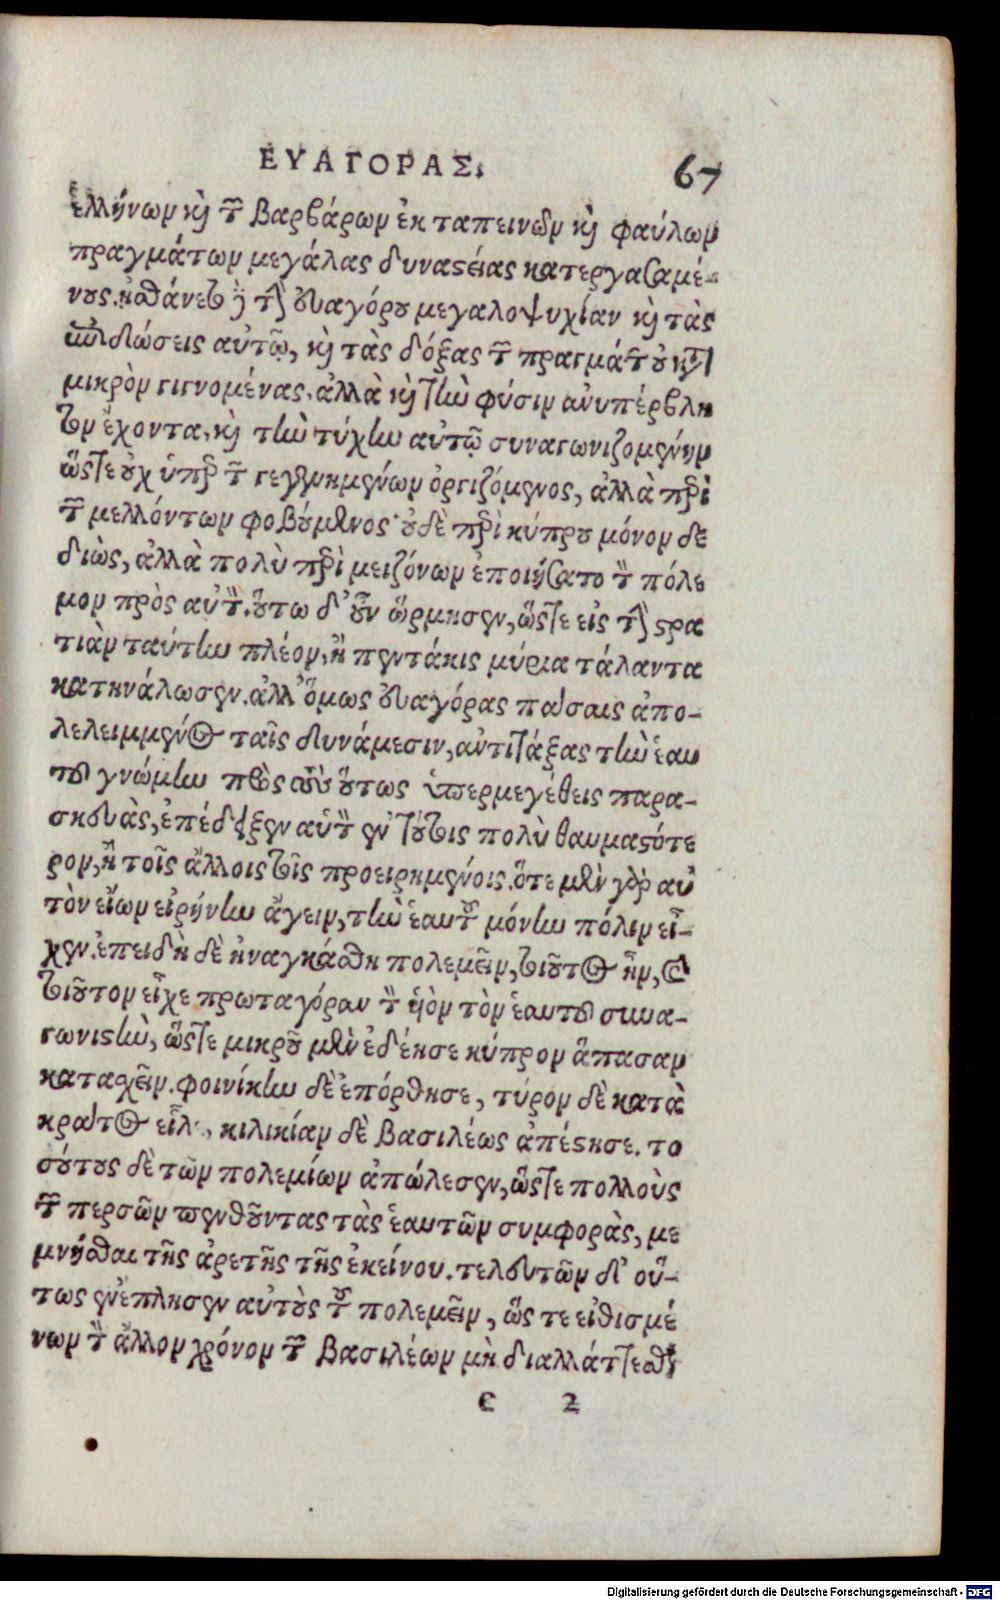 ΕΥΑΓΟΡΑΣ. 67
ἑλλήνων καὶ τῶν βαρβάρων ἐκ ταπεινῶν καὶ φαύλων
πραγμάτων μεγάλας δυναστείας κατεργασαμέ-
νους. ᾐσθάνετο δὲ τὴν εὐαγόρου μεγαλοψυχίαν καὶ τὰς
ἐπιδώσεις αὐτῷ, καὶ τὰς δόξας τῶν πραγμάτων οὐ κατὰ
μικρὸν γιγνομένας. ἀλλὰ καὶ τὴν φύσιν ἀνυπέρβλη
τον ἔχοντα, καὶ τὴν τύχην αὐτῷ συναγωνιζομένην
ὥστε οὐχ ὑπὲρ τῶν γεγενημένων ὀργιζόμενος, ἀλλὰ περὶ
τῶν μελλόντων φοβούμενος· οὐδὲ περὶ κύπρου μόνον δε
διὼς, ἀλλὰ πολὺ περὶ μειζόνων ἐποιήσατο τὸν πόλε
μον πρὸς αὐτόν. οὕτω δ' οὖν ὥρμησεν, ὥστε εἰς τὴν στρα
τιὰν ταύτην πλέον, ἢ πεντάκις μύρια τάλαντα
κατηνάλωσεν. ἀλλ' ὅμως εὐαγόρας πάσαις ἀπο-
λελειμμένος ταῖς δυνάμεσιν, ἀντιτάξας τὴν ἑαυ
τοῦ γνώμην πρὸς τὰς οὕτως ὑπερμεγέθεις παρα-
σκευὰς, ἐπέδειξεν αὑτὸν ἐν τούτοις πολὺ θαυμαστότε
ρον, ἢ τοῖς ἄλλοις τοῖς προειρημένοις. ὅτε μὲν γὰρ αὐ
τὸν εἴων εἰρήνην ἄγειν, τὴν ἑαυτοῦ μόνην πόλιν εἶ-
χεν. ἐπειδὴ δὲ ἠναγκάσθη πολεμεῖν, τοιοῦτος ἦν, καὶ
τοιοῦτον εἶχε πρωταγόραν τὸν υἱὸν τὸν ἑαυτοῦ συνα-
γωνιστὴν, ὥστε μικροῦ μὲν ἐδέησε κύπρον ἅπασαν
κατασχεῖν. φοινίκην δὲ ἐπόρθησε, τύρον δὲ κατὰ
κράτος εἷλε, κιλικίαν δὲ βασιλέως ἀπέστησε. το
σούτους δὲ τῶν πολεμίων ἀπώλεσεν, ὥστε πολλοὺς
τῶν περσῶν πενθοῦντας τὰς ἑαυτῶν συμφορὰς, με
μνῆσθαι τῆς ἀρετῆς τῆς ἐκείνου. τελευτῶν δ' οὕ-
τως ἐνέπλησεν αὐτοὺς τοῦ πολεμεῖν, ὥς τε εἰθισμέ
νων τὸν ἄλλον χρόνον τῶν βασιλέων μὴ διαλλάττεσθαι
e 2
Digitalisierung gefördert durch die Deutsche Forschungsgemeinschaft - DFG